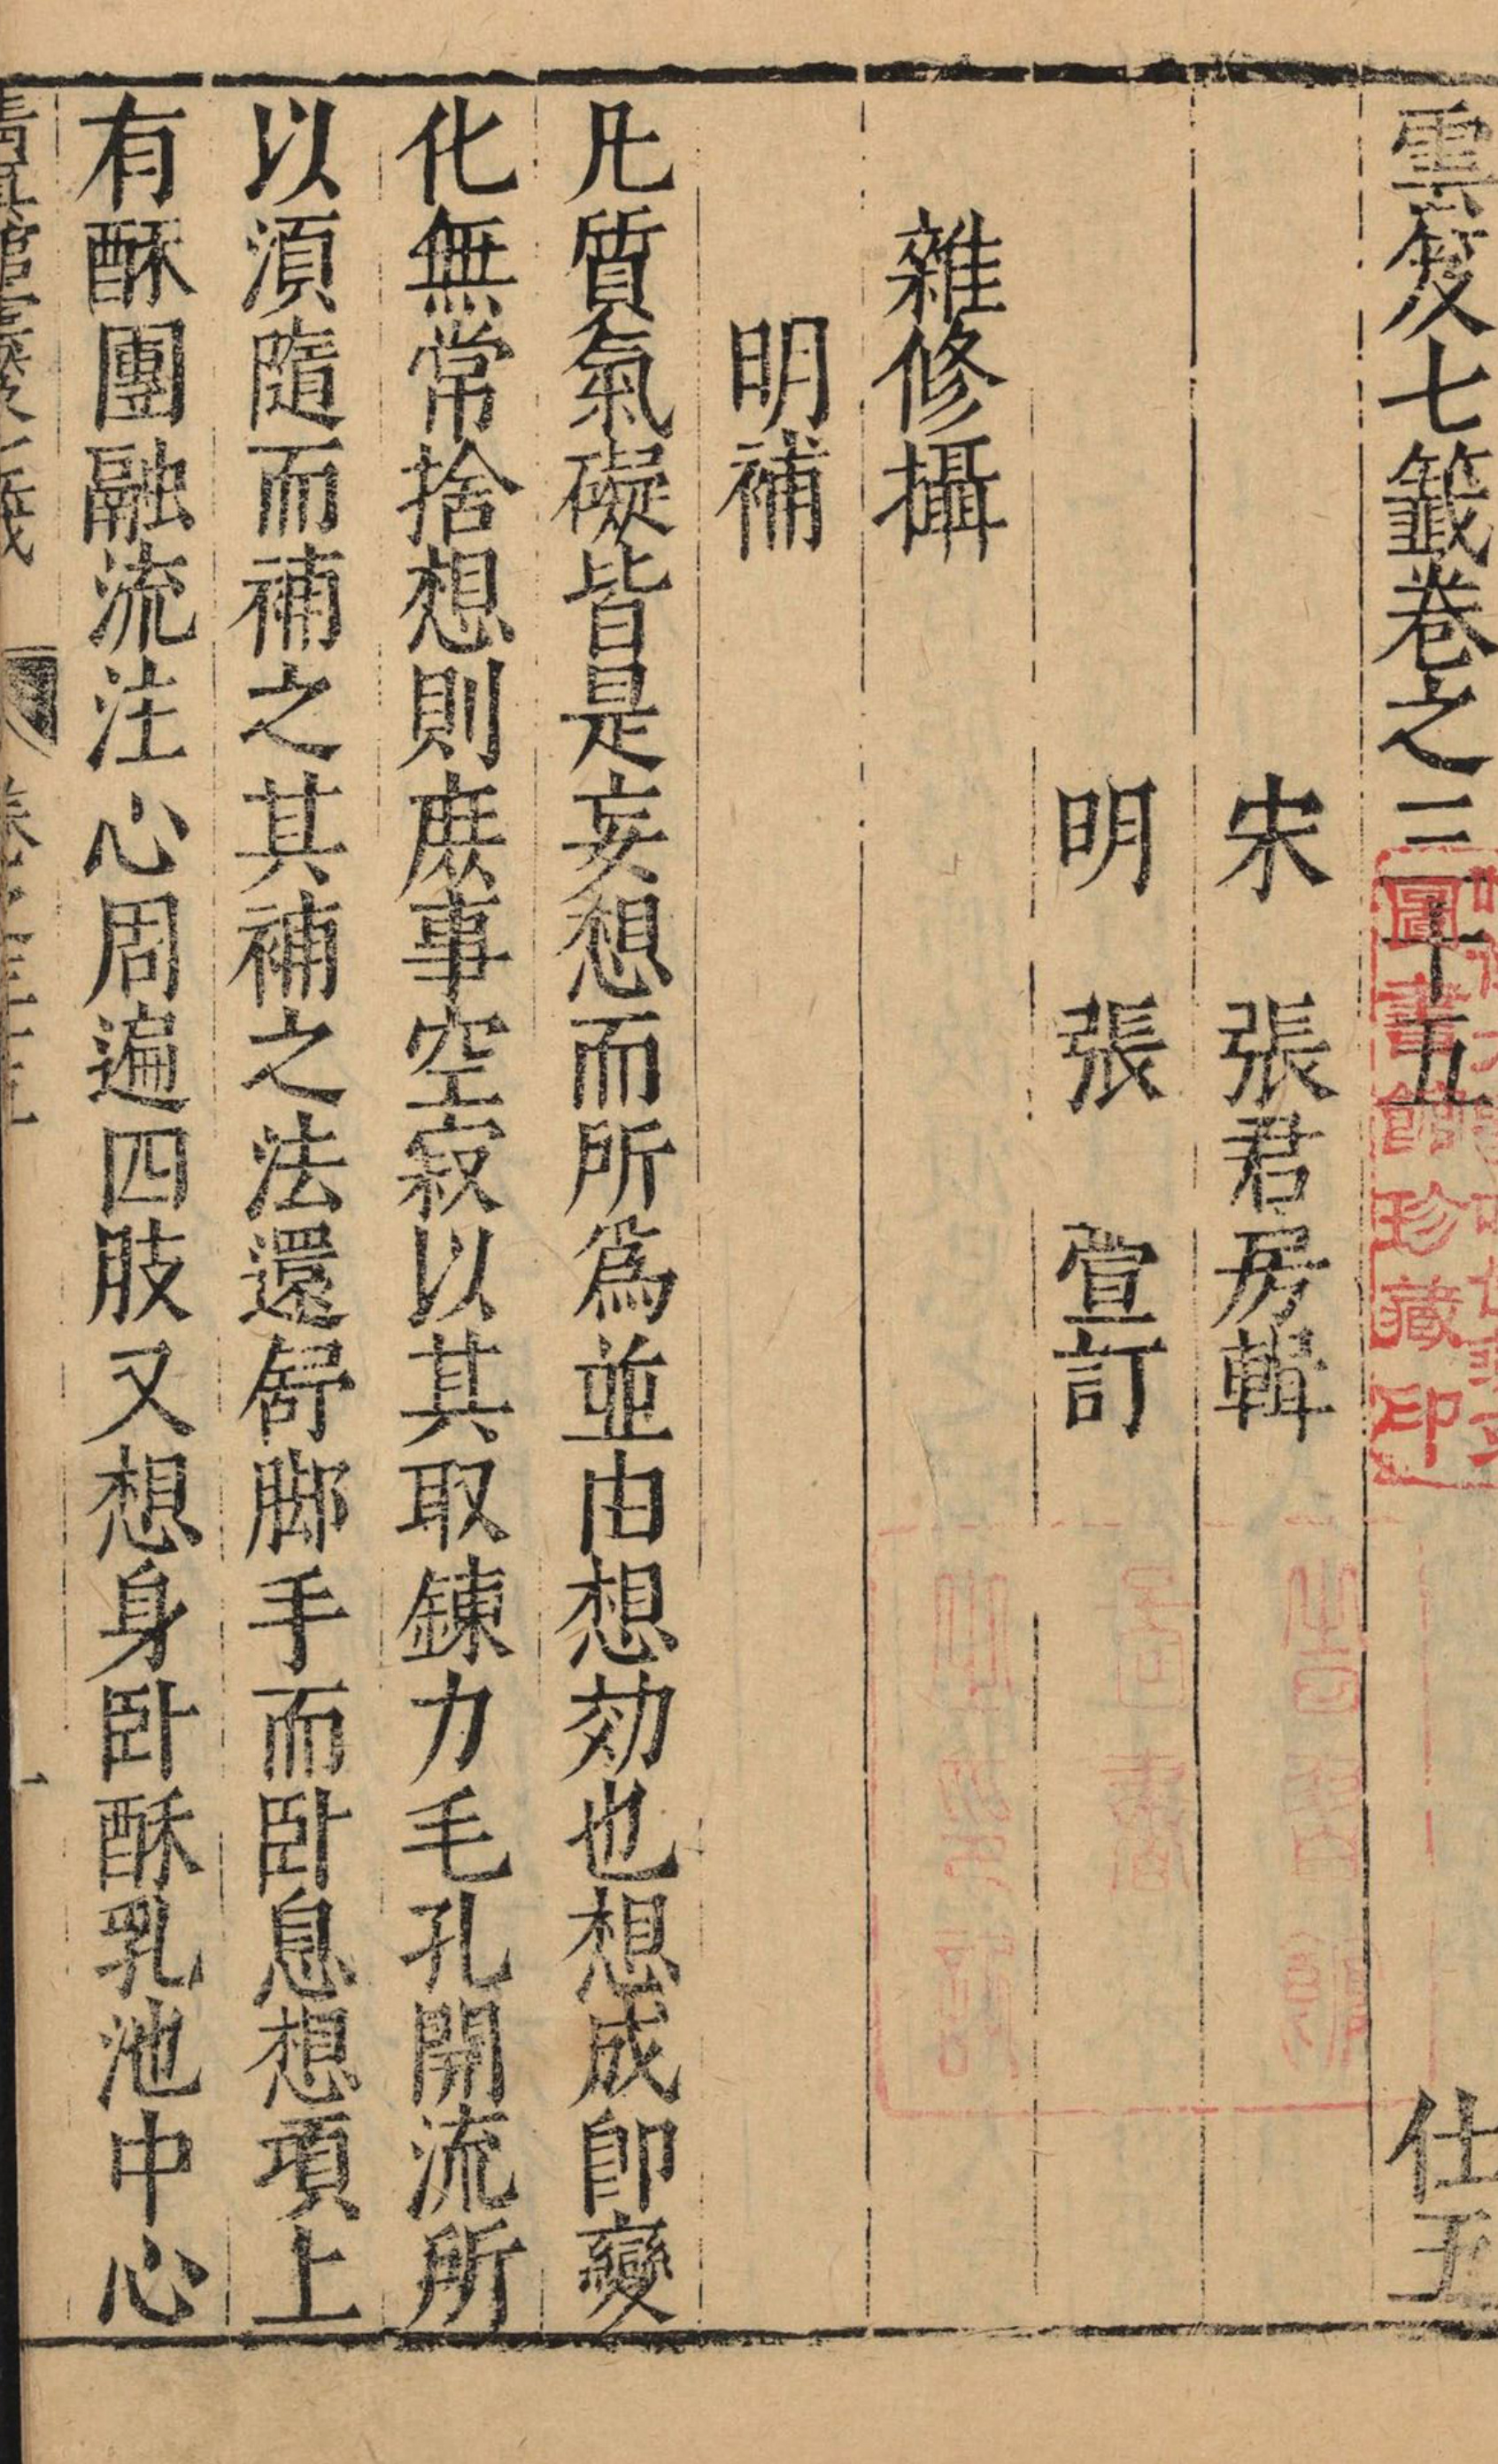 雲笈七籤卷之三十五 仕五
宋 張君房輯
明 張 萱訂
雜修攝
明補
凡質氣礙皆是妄想而所爲並由想効也想成卽變
化無常捨想則庻事空寂以其取鍊力毛孔開流所
以湏隨而補之其補之法還舒脚手而卧息想項上
有酥團融流注心周遍四肢又想身卧酥乳池中心
圖書館珍藏印